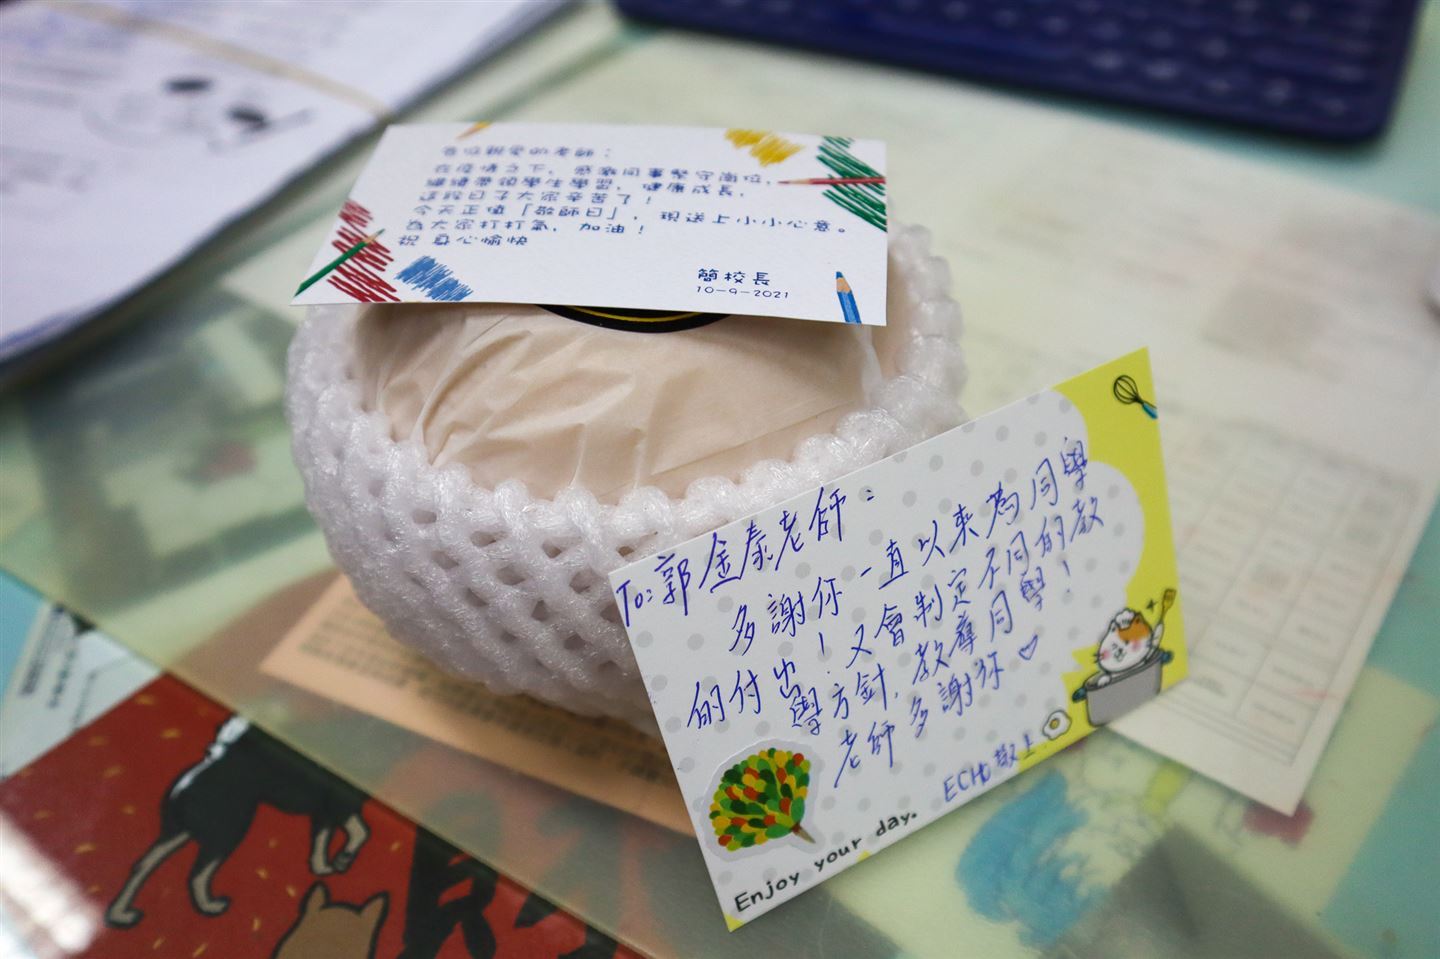 各位親愛的老師：
在疫情之下，感激同事堅守崗位，
繼續帶領學生學習，健康成長，
這段日子大家辛苦了！
今天正值「敬師日」，現送上小小心意。
為大家打打氣，加油！
祝 身心愉快
簡校長
10-9-2021
To:郭金泰老師：
多謝你一直以來為同學
的付出！又會制定不同的教
學方針，教導同學！
老師多謝你♡
ECHO敬上
Enjoy your day.